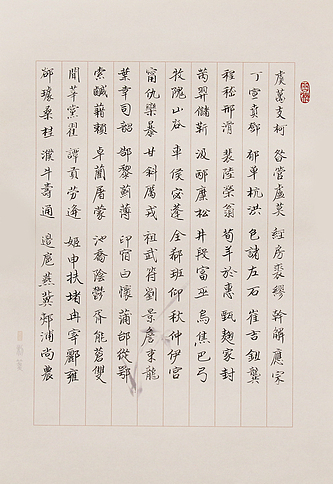 虞萬支柯 昝管盧莫 經房裘繆 幹解應宗
丁宣賁鄧 郁單杭洪 包諸左石 崔吉鈕龔
程嵇邢滑 裴陸榮翁 荀羊於惠 甄麴家封
芮羿儲靳 汲邴糜松 井段富巫 烏焦巴弓
牧隗山谷 車侯宓蓬 全郗班仰 秋仲伊宮
甯仇欒暴 甘斜厲戎 祖武符劉 景詹束龍
葉幸司韶 郜黎薊薄 印宿白懷 蒲邰從鄂
索鹹藉賴 卓藺屠蒙 池喬陰鬱 胥能蒼雙
聞莘黨翟 譚貢勞逄 姬申扶堵 冉宰酈雍
郤璩桑桂 濮牛壽通 邊扈燕冀 郟浦尚農